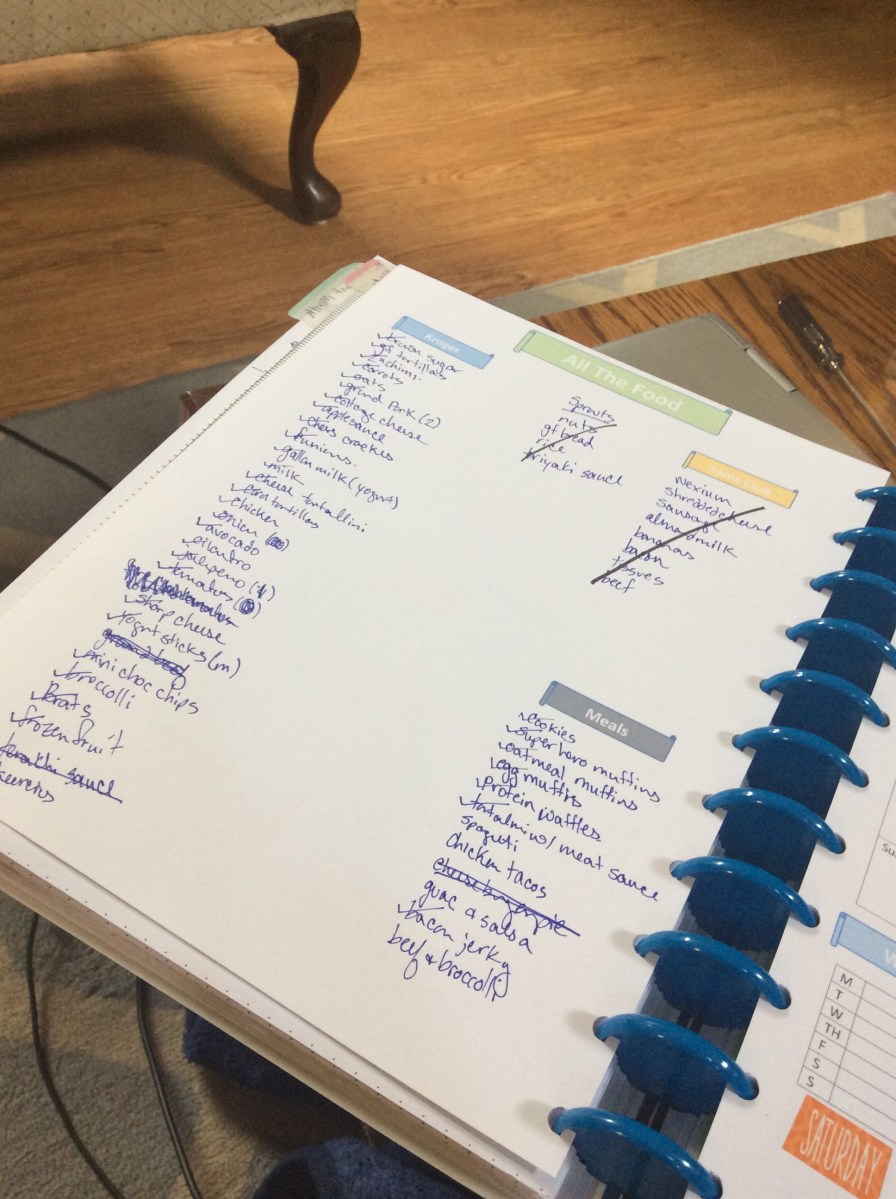 Kroger
brown sugar
gf tortillas
zuchini
carrots
oats
ground pork (2)
cottage cheese
applesauce
chers crackers
funions
gallon milk (yogurt)
milk
cheese tortallini
corn tortillas
chicken
onion
avocado
cilantro
jalepeno (1)
tomatos
sharp cheese
yogrt sticks (m)
ground beef
mini choc chips
broccolli
Brats
frozen fruit
sauce
All The Food
Sprouts
nuts
gf bread
rice
triyaki sauce
Sams Club
nexium
shredded cheese
sausage
almond milk
bananas
bacon
tissues
beef
Meals
cookies
super hero muffins
oatmeal muffins
egg muffins
protein waffles
meat sauce
spaguti
chicken tacos
guac & salsa
bacon jerky
beef & broccolli
W
M
T
W
TH
F
S
S
SATURDAY